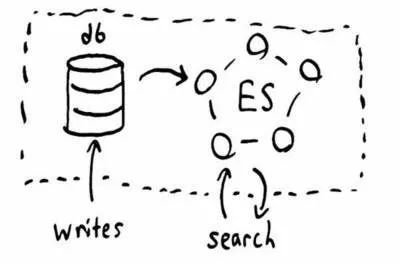 db
ES
writes
search